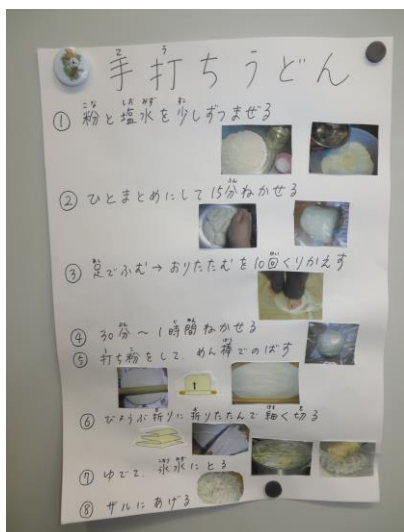 手打ちうどん
① 粉と塩水を少しずつまぜる
② ひとまとめにして15分ねかせる
③ 足でふむ→おりたたむを10回くりかえす
④ 30分～1時間ねかせる
⑤ 打ち粉をして、めん棒でのばす
1
⑥ びょうぶ折りに折りたたんで細く切る
⑦ ゆでて、氷水にとる
⑧ ザルにあげる